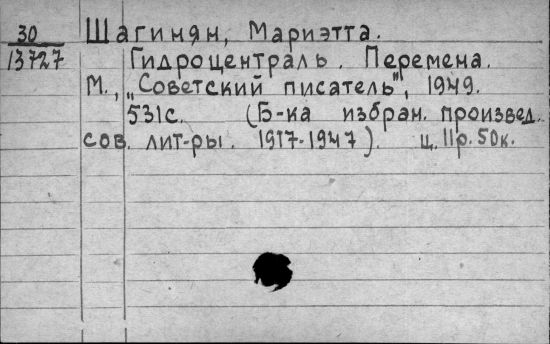 30 Шагинян, Мариэтта.
13727 Гидроцентраль. Перемена.
М., „Советский писатель", 1949.
531с. (Б-ка избран. произвед.
сов. лит-ры. 1917-1947). ц. 11р. 50к.